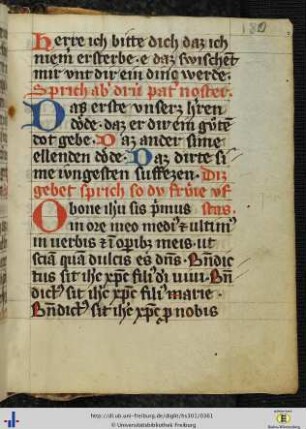 180
Herre ich bitte dich daz ich
niem ersterbe · e daz zwischent
mir vnt dir ein dinsg werde ·
Sprich ab' driv pat' noster ·
Daz erste vnserz h'ren
dode · daz er dir ein gute
tot gebe · Daz ander sime
ellenden dode · Daz dirte si
me iungesten suffzen · Diz
gebet sprich so dv fruie vf
O bone ihu sis p'mus stas ·
in ore meo medi' et ultim'
in uerbis et i opib; meis · ut
scia qua dulcis es dns · Bn dic
tus sit ihc xpc fili' di uiui · Bn
dict' sit ihc xpc fili' marie ·
Bn dict' sit ihc xpc p nobis
http://dl.ub.uni-freiburg.de/diglit/hs301/0361
© Universitätsbibliothek Freiburg